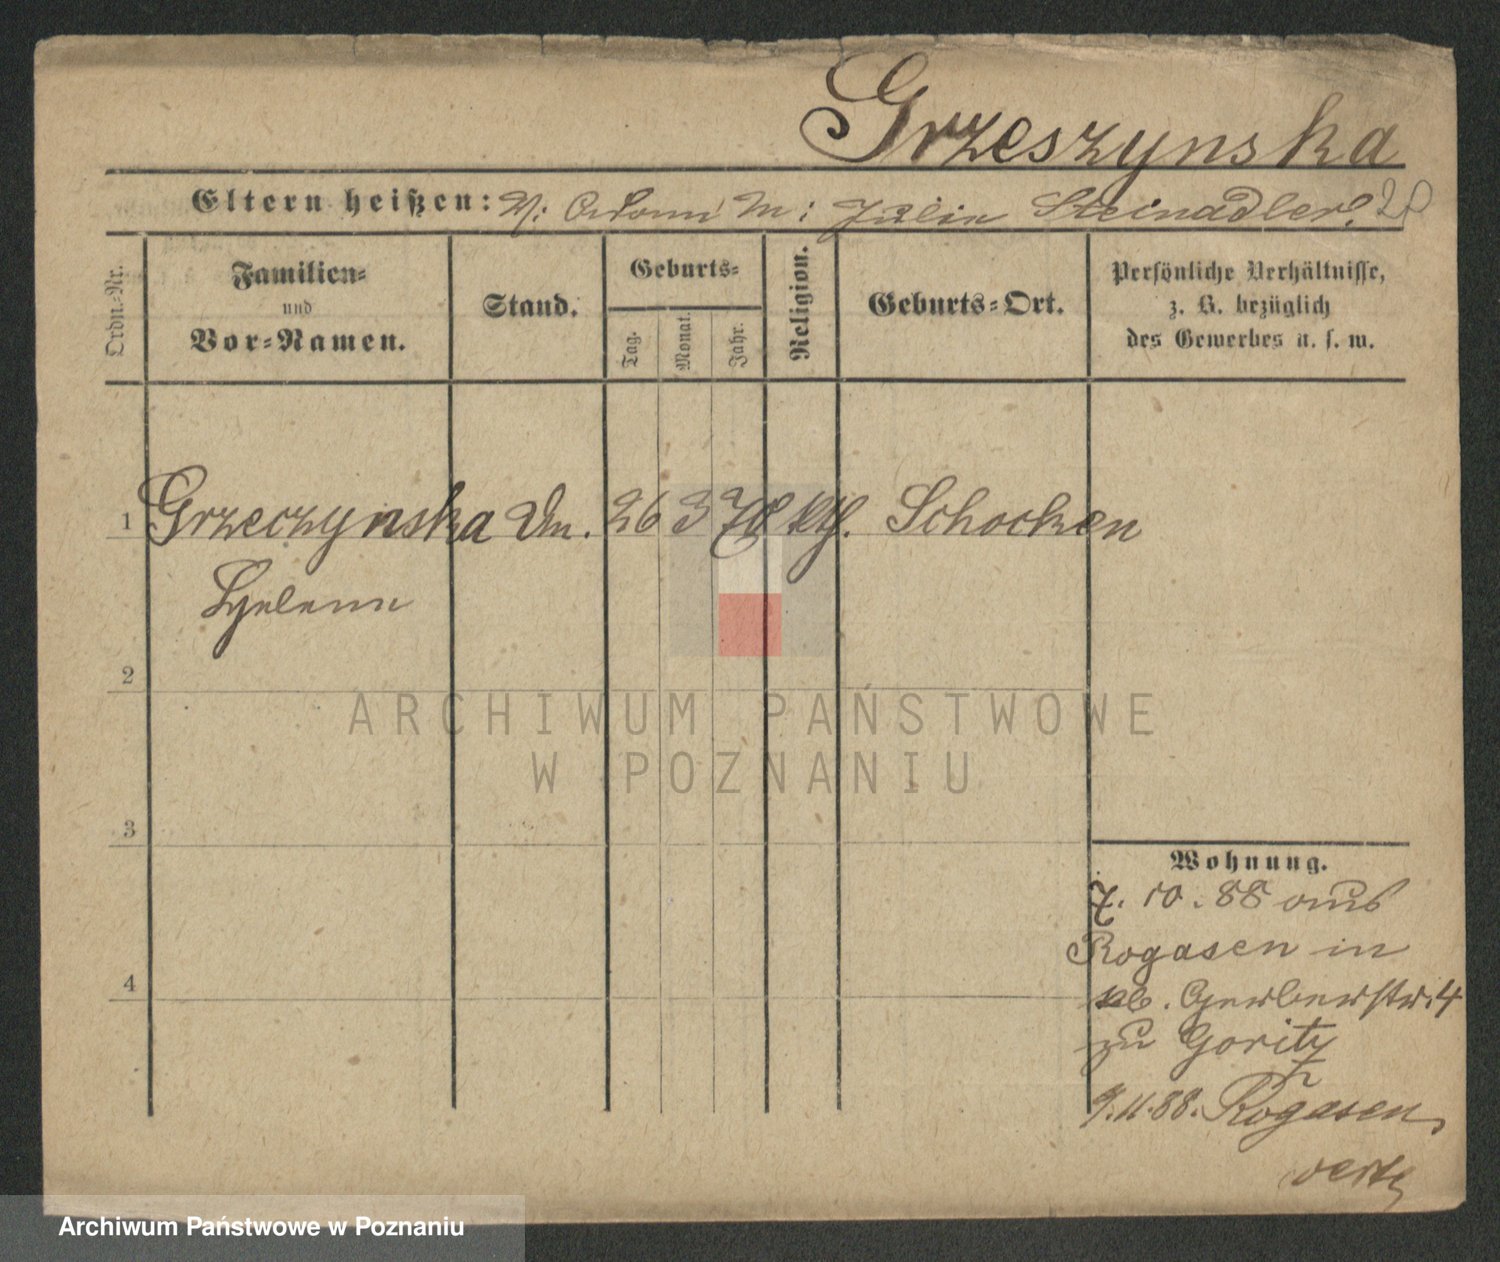 Grzeszynska
Eltern heißen: V: Adam M: Julie Steinadler. 20
Ordn.-Nr.
Familien-
und
Vor-Namen.
Stand.
Geburts-
Tag.
Monat.
Jahr.
Religion.
Geburts-Ort.
Persönliche Verhältnisse,
z. B. bezüglich
des Gewerbes u. s. w.
1 Grzeczynska 26 3 70 kth. Schocken
Helene
2
ARCHIWUM PAŃSTWOWE
W POZNANIU
3
Wohnung.
7. 10. 88 aus
Rogasen in
kl. Gerberstr. 4
4
zu Goritz
9.11.88. Rogasen
Archiwum Państwowe w Poznaniu